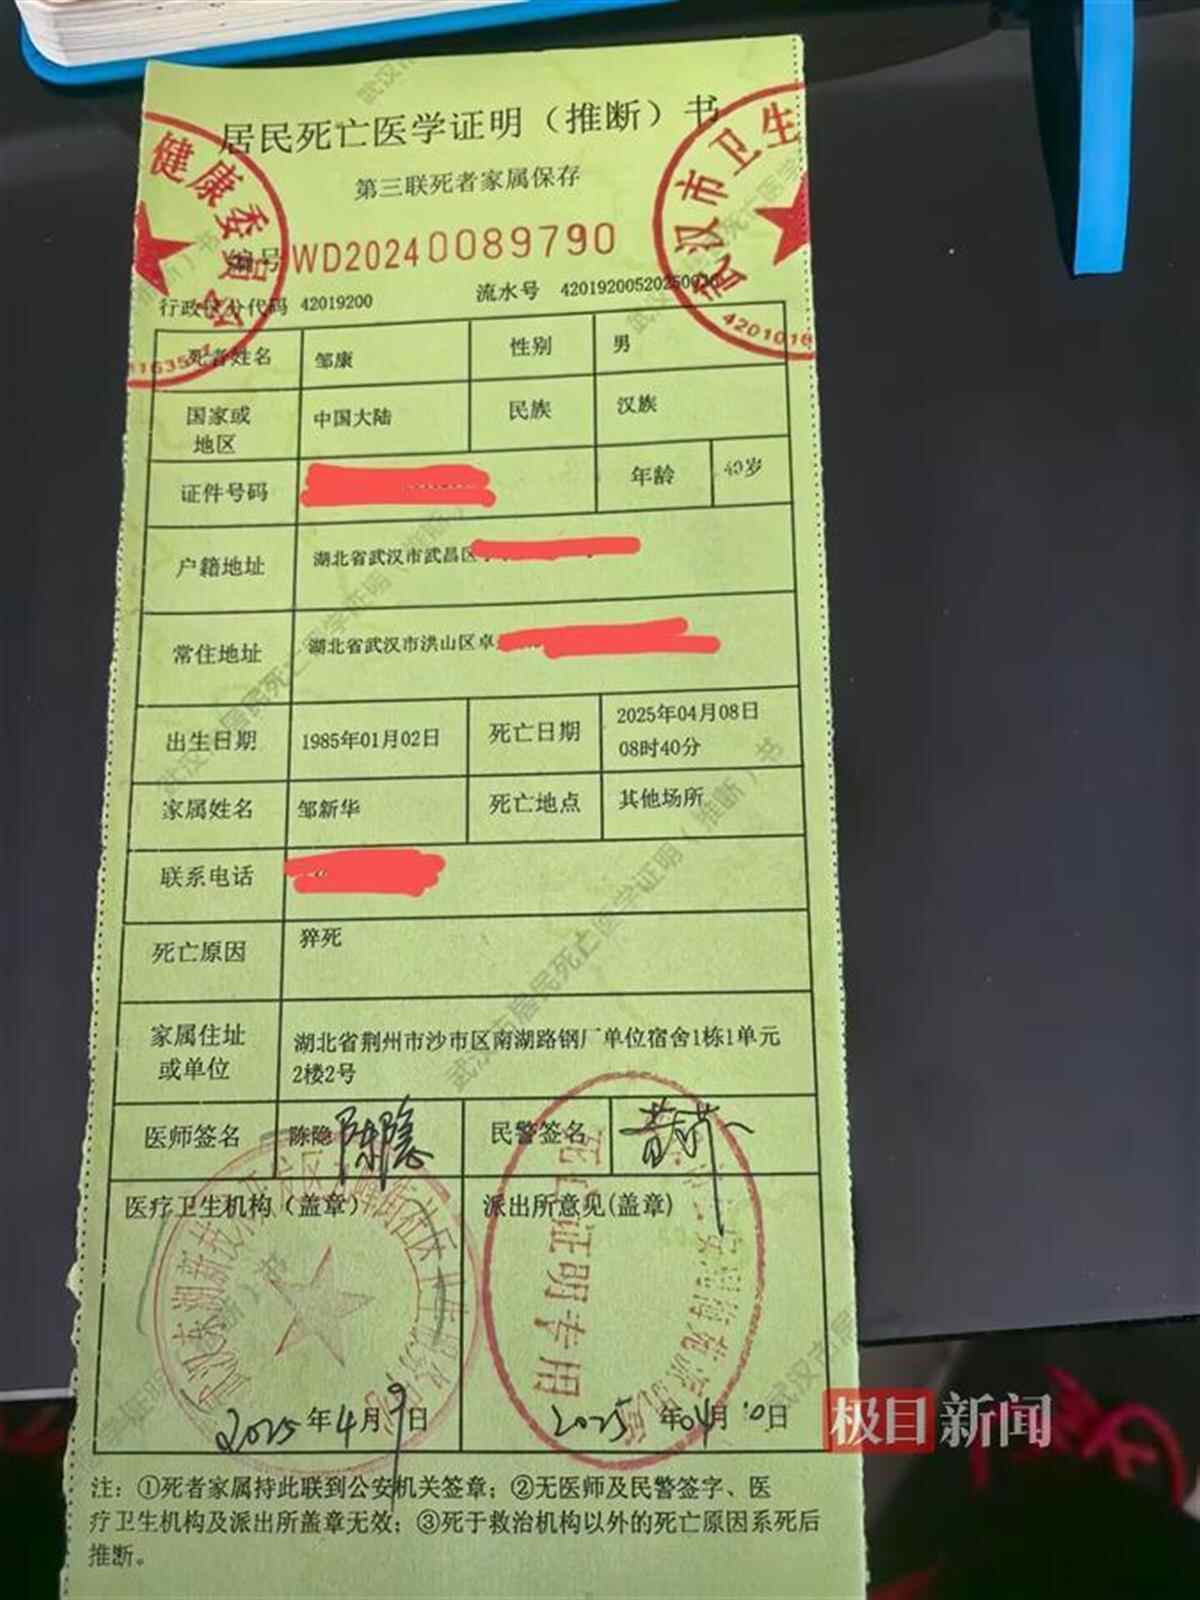 居民死亡医学证明（推断）书
第三联死者家属保存
编号 WD20240089790
行政区划代码 42019200 流水号
死者姓名 邹康 性别 男
国家或地区 中国大陆 民族 汉族
证件号码 年龄 40岁
户籍地址 湖北省武汉市武昌区
常住地址 湖北省武汉市洪山区卓
出生日期 1985年01月02日 死亡日期 2025年04月08日
08时40分
家属姓名 邹新华 死亡地点 其他场所
联系电话
死亡原因 猝死
家属住址或单位 湖北省荆州市沙市区南湖路钢厂单位宿舍1栋1单元
2楼2号
医师签名 陈隐 陈隐 民警签名
医疗卫生机构（盖章） 派出所意见(盖章)
死亡证明专用
2025年4月9日 2025年04月10日
注：①死者家属持此联到公安机关签章；②无医师及民警签字、医
疗卫生机构及派出所盖章无效；③死于救治机构以外的死亡原因系死后
推断。
健康委员会
武汉市卫生
4201016
极目新闻